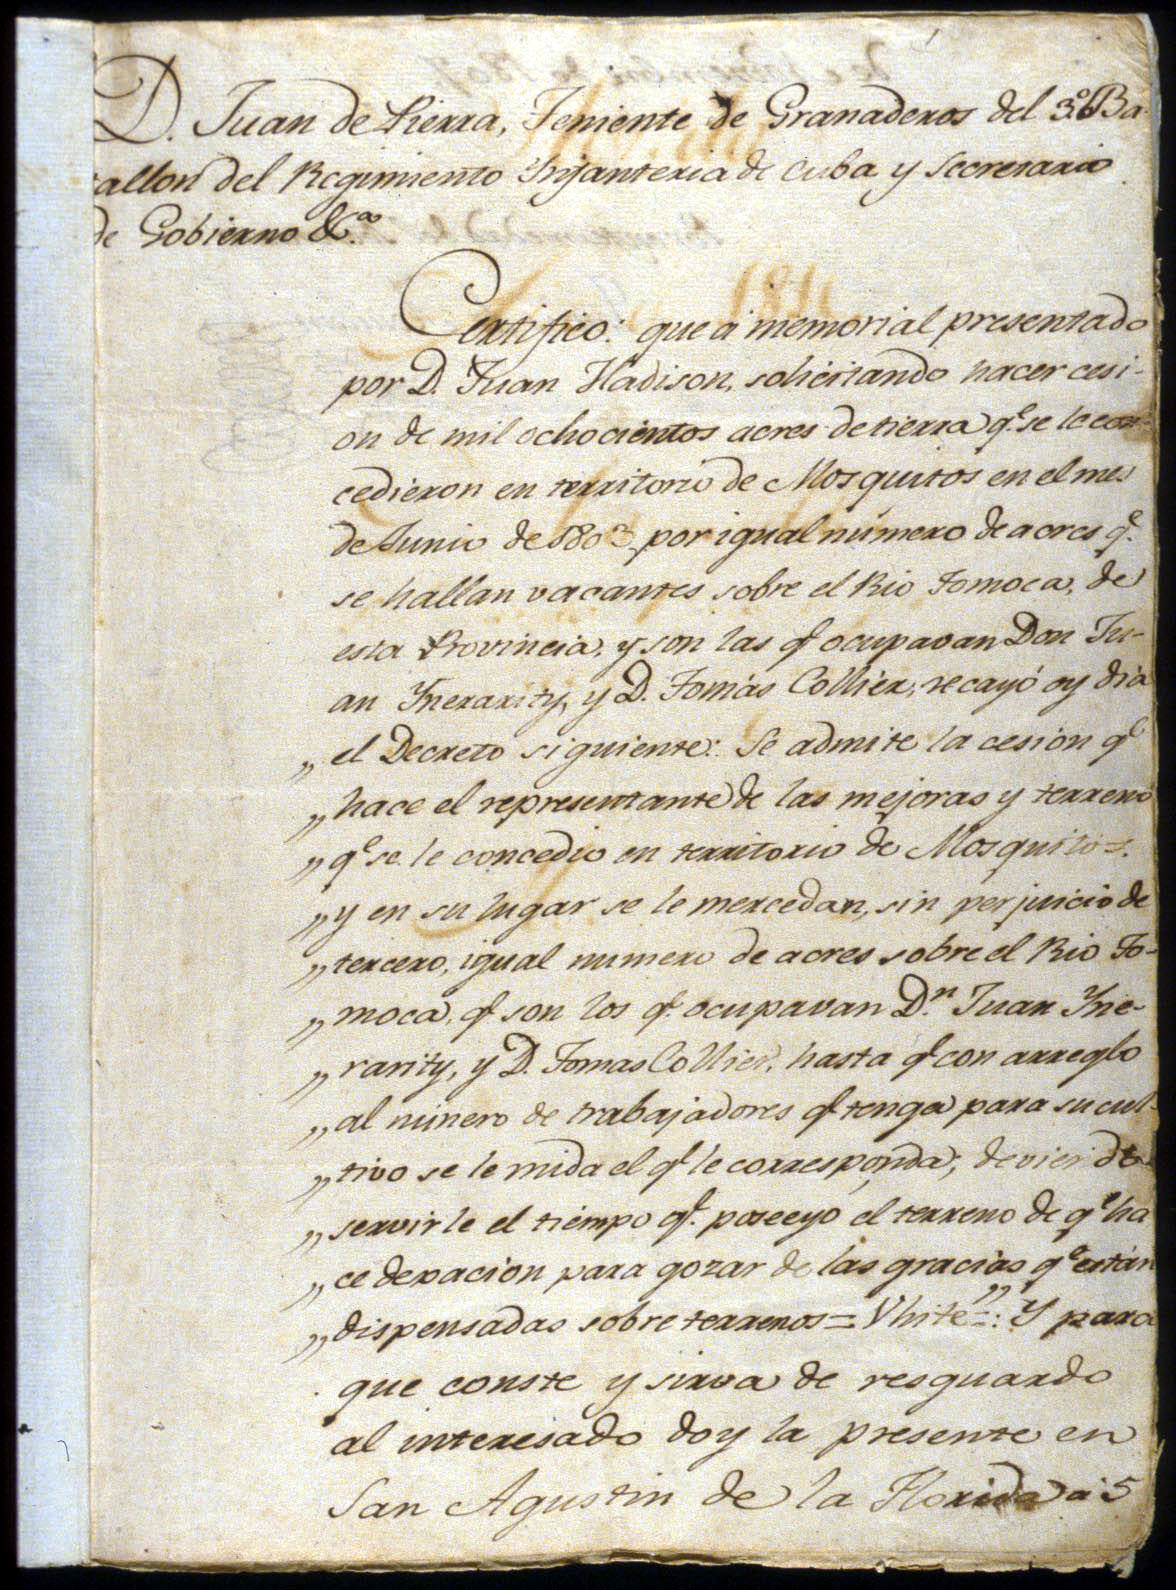 D. Juan de Pierra, Teniente de Granaderos del 3.º Ba
tallon del Regimiento Ynfanteria de Cuba y Secretario
de Gobierno &C.ª
Certifico: que á memorial presentado
por D. Juan Hadison, solicitando hacer cesi-
on de mil ochocientos acres de tierra q.e se le con-
cedieron en territorio de Mosquitos en el mes
de Junio de 1803, por igual número de acres q.e
se hallan vacantes sobre el Rio Tomoca, de
esta Provincia, y son las q.e ocupavan Don Ju-
an Ynerarity, y D. Tomás Collier, recayó oy dia
„ el Decreto siguiente: Se admite la cesion q.e
„ hace el representante de las mejoras y terreno
„ q.e se le concedio en territorio de Mosquitos.
„ y en su lugar se le mercedan, sin perjuicio de
„ tercero, igual numero de acres sobre el Rio To-
„ moca, q.e son los q.e ocupavan D.n Juan Yne-
„ rarity, y D. Tomas Collier, hasta q.e con arreglo
„ al número de trabajadores q.e tenga para su cul-
„ tivo se le mida el q.e le corresponda; deviendo
„ servirle el tiempo q.e poseeyó el terreno de q.e ha
„ ce dexacion para gozar de las gracias q.e están
„ dispensadas sobre terrenos = Vhite „ =: Y para
que conste y sirva de resguardo
al interesado doy la presente en
San Agustin de la Florida á 5